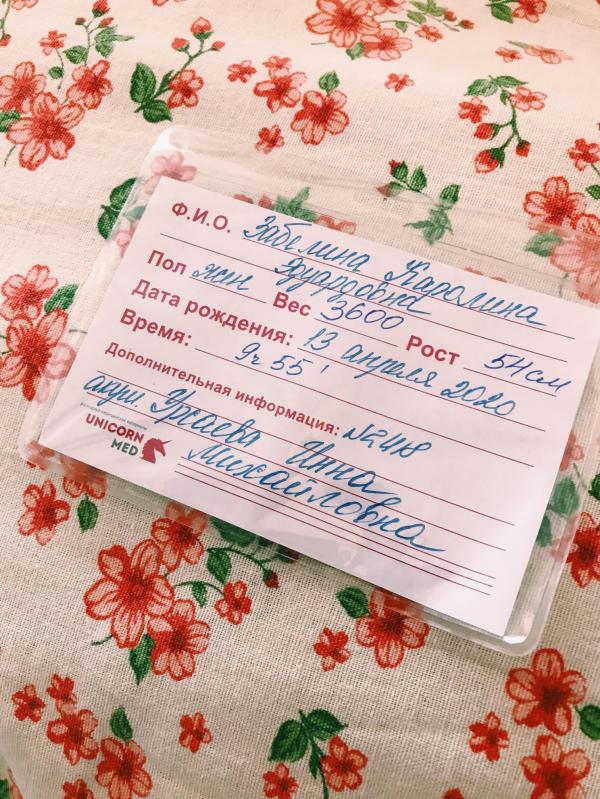 Ф.И.О. Забелина Каролина
Эдуардовна
Пол жен Вес 3600 Рост 54см
Дата рождения: 13 апреля 2020
Время: 9ч 55'
Дополнительная информация: №248
акуш. Ужаева Инна
Михайловна
UNICORN
MED